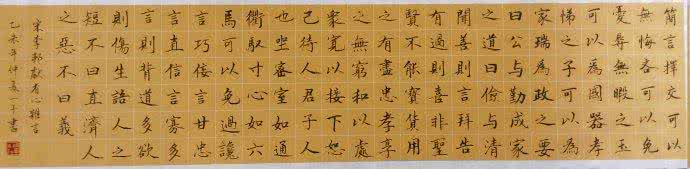 簡言擇交可以
無悔吝可以免
憂辱無瑕之玉
可以為國器孝
悌之子可以為
家瑞為政之要
曰公與勤成家
之道曰儉與清
聞善言則拜告
有過則喜非聖
賢不能寶貨用
之有盡忠孝享
之無窮和以處
眾寬以接下恕
己待人君子人
也坐密室如通
衢馭寸心如六
馬可以免過讒
言巧佞言甘忠
言直信言寡多
言則背道多欲
則傷生語人之
短不曰直濟人
之惡不曰義
宋李邦獻省心雜言
乙未年仲夏一子書